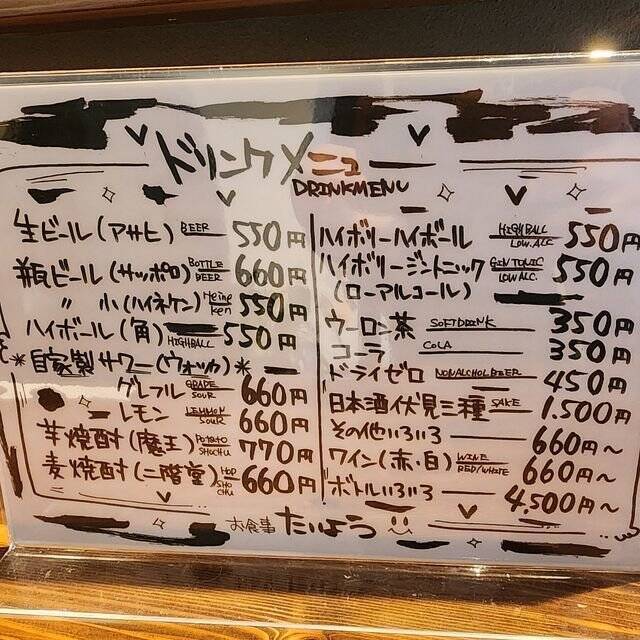 ドリンクメニュー
DRINKMENU
生ビール(アサヒ) BEER 550円
瓶ビール(サッポロ) BOTTLE BEER 660円
〃 小(ハイネケン) Heineken 550円
ハイボール(角) HIGHBALL 550円
*自家製サワー(ウォッカ)*
グレフル GRAPE SOUR 660円
レモン LEMMON SOUR 660円
芋焼酎(魔王) POTATO SHOCHU 770円
麦焼酎(二階堂) HOP SHOCHU 660円
ハイボリーハイボール HIGHBALL LOW.ALC 550円
ハイボリージントニック GIN TONIC LOW ALC. 550円
(ローアルコール)
ウーロン茶 SOFTDRINK 350円
コーラ COLA 350円
ドライゼロ NONALCHOLBEER 450円
日本酒伏見三種 SAKE 1.500円
その他いろいろ 660円~
ワイン(赤・白) WINE RED/WHITE 660円~
ボトルいろいろ 4,500円~
お食事 たいよう